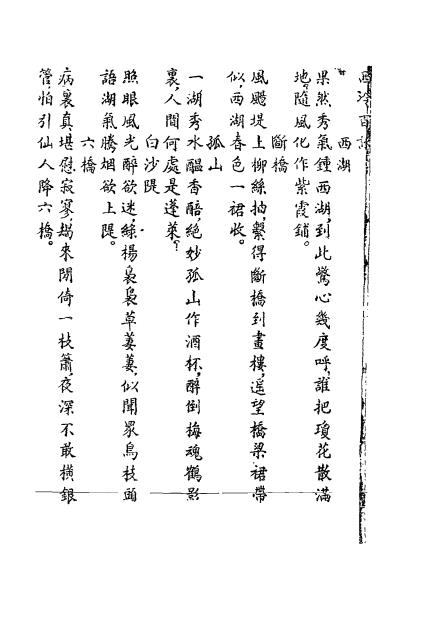 西泠百詠
西湖
果然秀氣鍾西湖,到此驚心幾度呼,誰把瓊花散滿
地,隨風化作紫霞鋪。
斷橋
風颺堤上柳絲抽,繫得斷橋到畫樓,遥望橋梁裙帶
似,西湖春色一裙收。
孤山
一湖秀水醞香醅,絕妙孤山作酒杯,醉倒梅魂鶴影
裏,人間何處是蓬萊?
白沙隄
照眼風光醉欲迷,絲楊裊裊草萋萋,似聞眾鳥枝頭
語,湖氣騰烟欲上隄。
六橋
病裏真堪慰寂寥,趨來閒倚一枝簫,夜深不敢橫銀
管,怕引仙人降六橋。